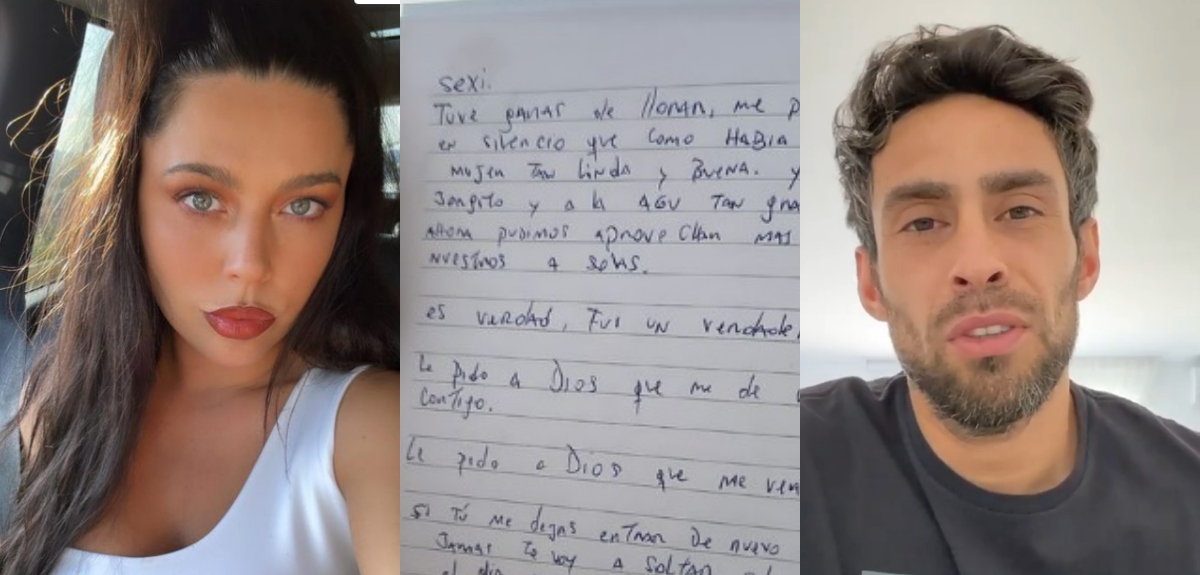 sexi.
Tuve ganas de llorar, me p
en silencio que como HABIA
mujer TAN linda y BUENA. y
Jorgito y a la AGU TAN gra
AHORA pudimos aprovechar MAS
nuestros a solas.
es verdad, Fui un verdade
Le pido a Dios que me de
contigo.
Le pido a Dios que me ven
si Tú me dejas entrar de nuevo
Jamas Te voy a soltar
el dia